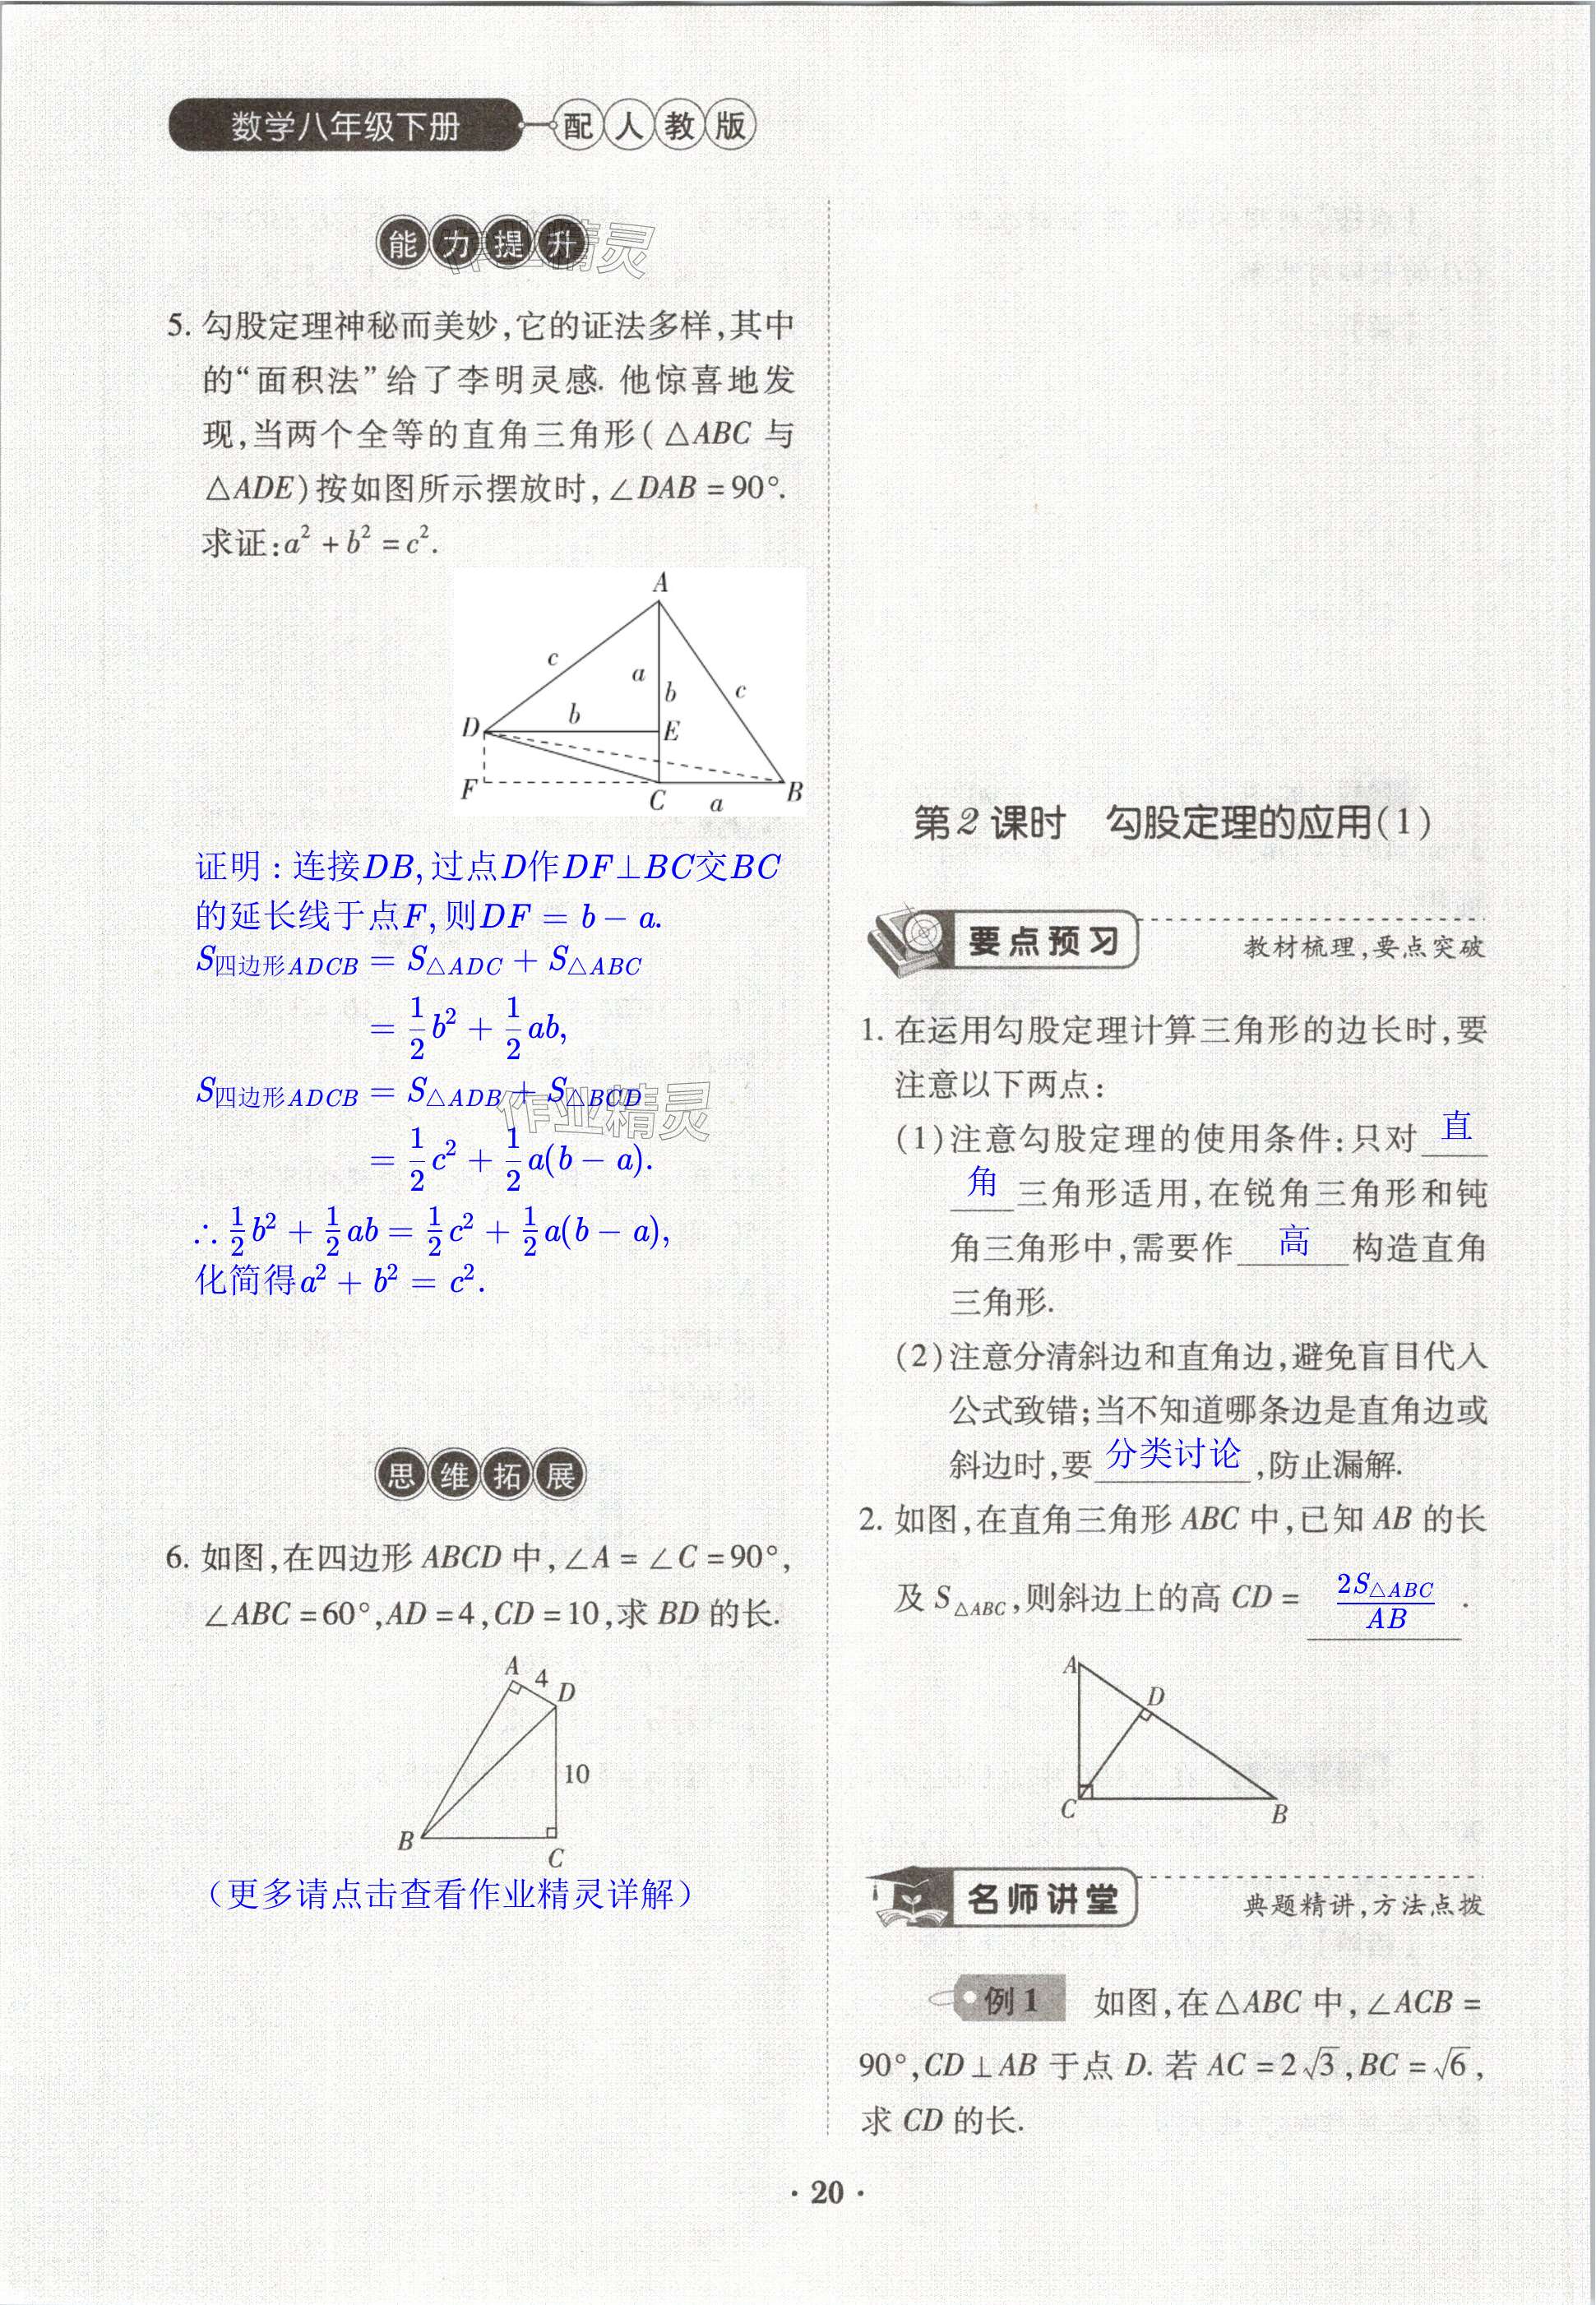 数学八年级下册 配人教版
能力提升
5. 勾股定理神秘而美妙,它的证法多样,其中
的“面积法”给了李明灵感. 他惊喜地发
现,当两个全等的直角三角形(△ABC 与
△ADE)按如图所示摆放时,∠DAB=90°.
求证:a²+b²=c².
A
c
a
b
c
D
b
E
F
C
a
B
证明:连接DB,过点D作DF⊥BC交BC
的延长线于点F,则DF=b-a.
S四边形ADCB=S△ADC+S△ABC
=1/2b²+1/2ab,
S四边形ADCB=S△ADB+S△BCD
=1/2c²+1/2a(b-a).
∴1/2b²+1/2ab=1/2c²+1/2a(b-a),
化简得a²+b²=c².
作业精灵
思维拓展
6. 如图,在四边形 ABCD 中,∠A=∠C=90°,
∠ABC=60°,AD=4,CD=10,求 BD 的长.
A
4
D
10
B
C
(更多请点击查看作业精灵详解)
第2课时 勾股定理的应用(1)
要点预习 教材梳理,要点突破
1. 在运用勾股定理计算三角形的边长时,要
注意以下两点:
(1)注意勾股定理的使用条件:只对 直
角 三角形适用,在锐角三角形和钝
角三角形中,需要作 高 构造直角
三角形.
(2)注意分清斜边和直角边,避免盲目代入
公式致错;当不知道哪条边是直角边或
斜边时,要 分类讨论 ,防止漏解.
2. 如图,在直角三角形 ABC 中,已知 AB 的长
及 S△ABC,则斜边上的高 CD= 2S△ABC/AB .
A
D
C
B
名师讲堂 典题精讲,方法点拨
例1 如图,在△ABC 中,∠ACB=
90°,CD⊥AB 于点 D. 若 AC=2√3,BC=√6,
求 CD 的长.
· 20 ·